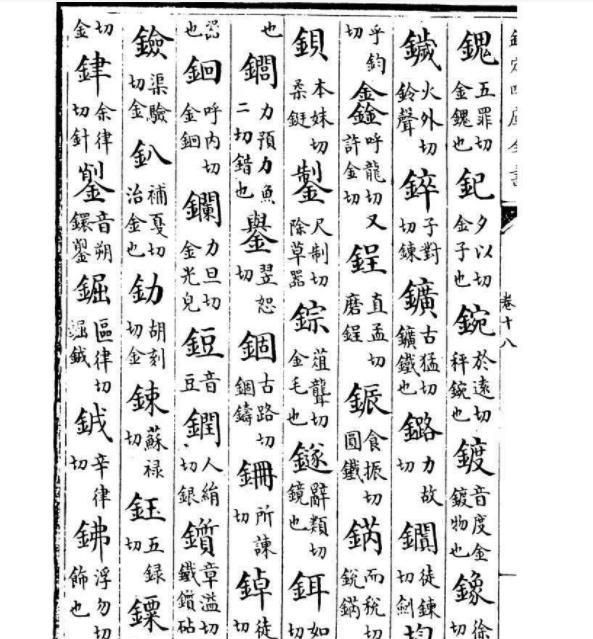 五罪切金也釲夕以切金子也鋺於遠切秤鋺也鍍音度金鍍物也鐌徐切
鐬火外切鈴聲錊子對切鍊鑛古猛切鑛鐵也鏴力故切徒鍊切
乎鈞切呼龍切又許金切鋥直孟切磨鋥鋠食振切圓鐵而稅切銳
鋇本妹切柔鋌尺制切除草器錝聾切金毛也鐩辭類切鏡也鉺如切
也力預力魚二切錯也翌恕切錮古路切錮鑄所諫切鋽徒切
器也呼內切金鑭力旦切金光皃鋀音豆人絹切銀鑕章溢切鐵鑕砧
鐱渠驗切金釟補戞切治金也胡刻切金鋉蘇祿切鈺五錄切鏢
切金銉余律切針音朔區律切辛律切鉘浮勿切飾也
卷十八